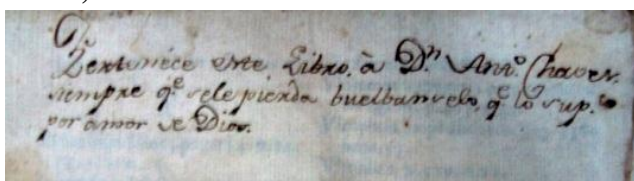 Pertenece este Libro. à D.n Ant.o Chaves.
siempre q.e sele pierda buelbanselo, q.e lo sup.co
por amor de Dios.